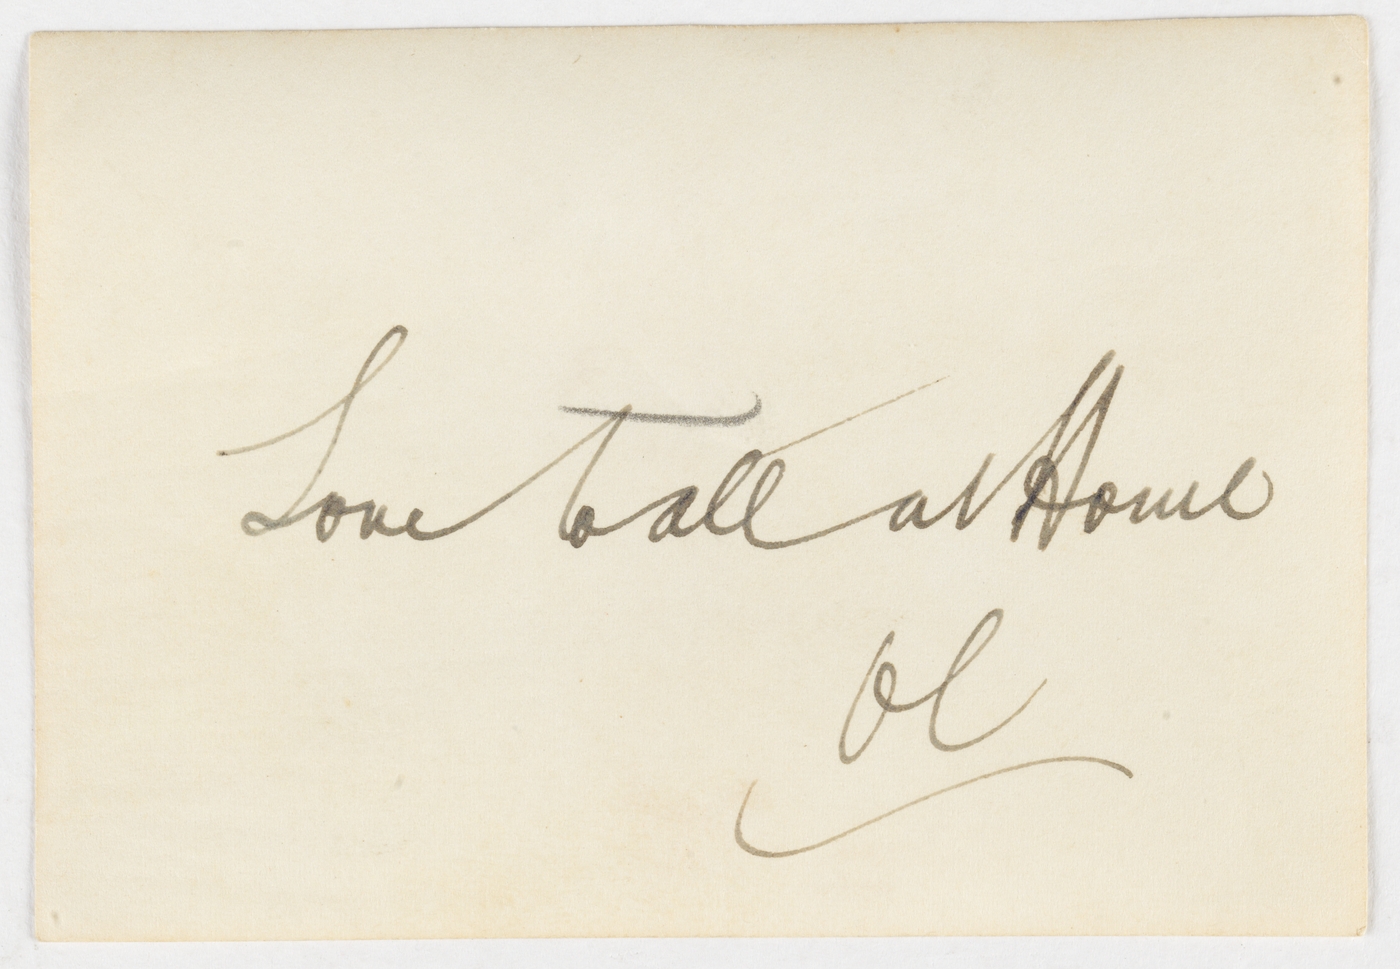 Love to all at Home
OC